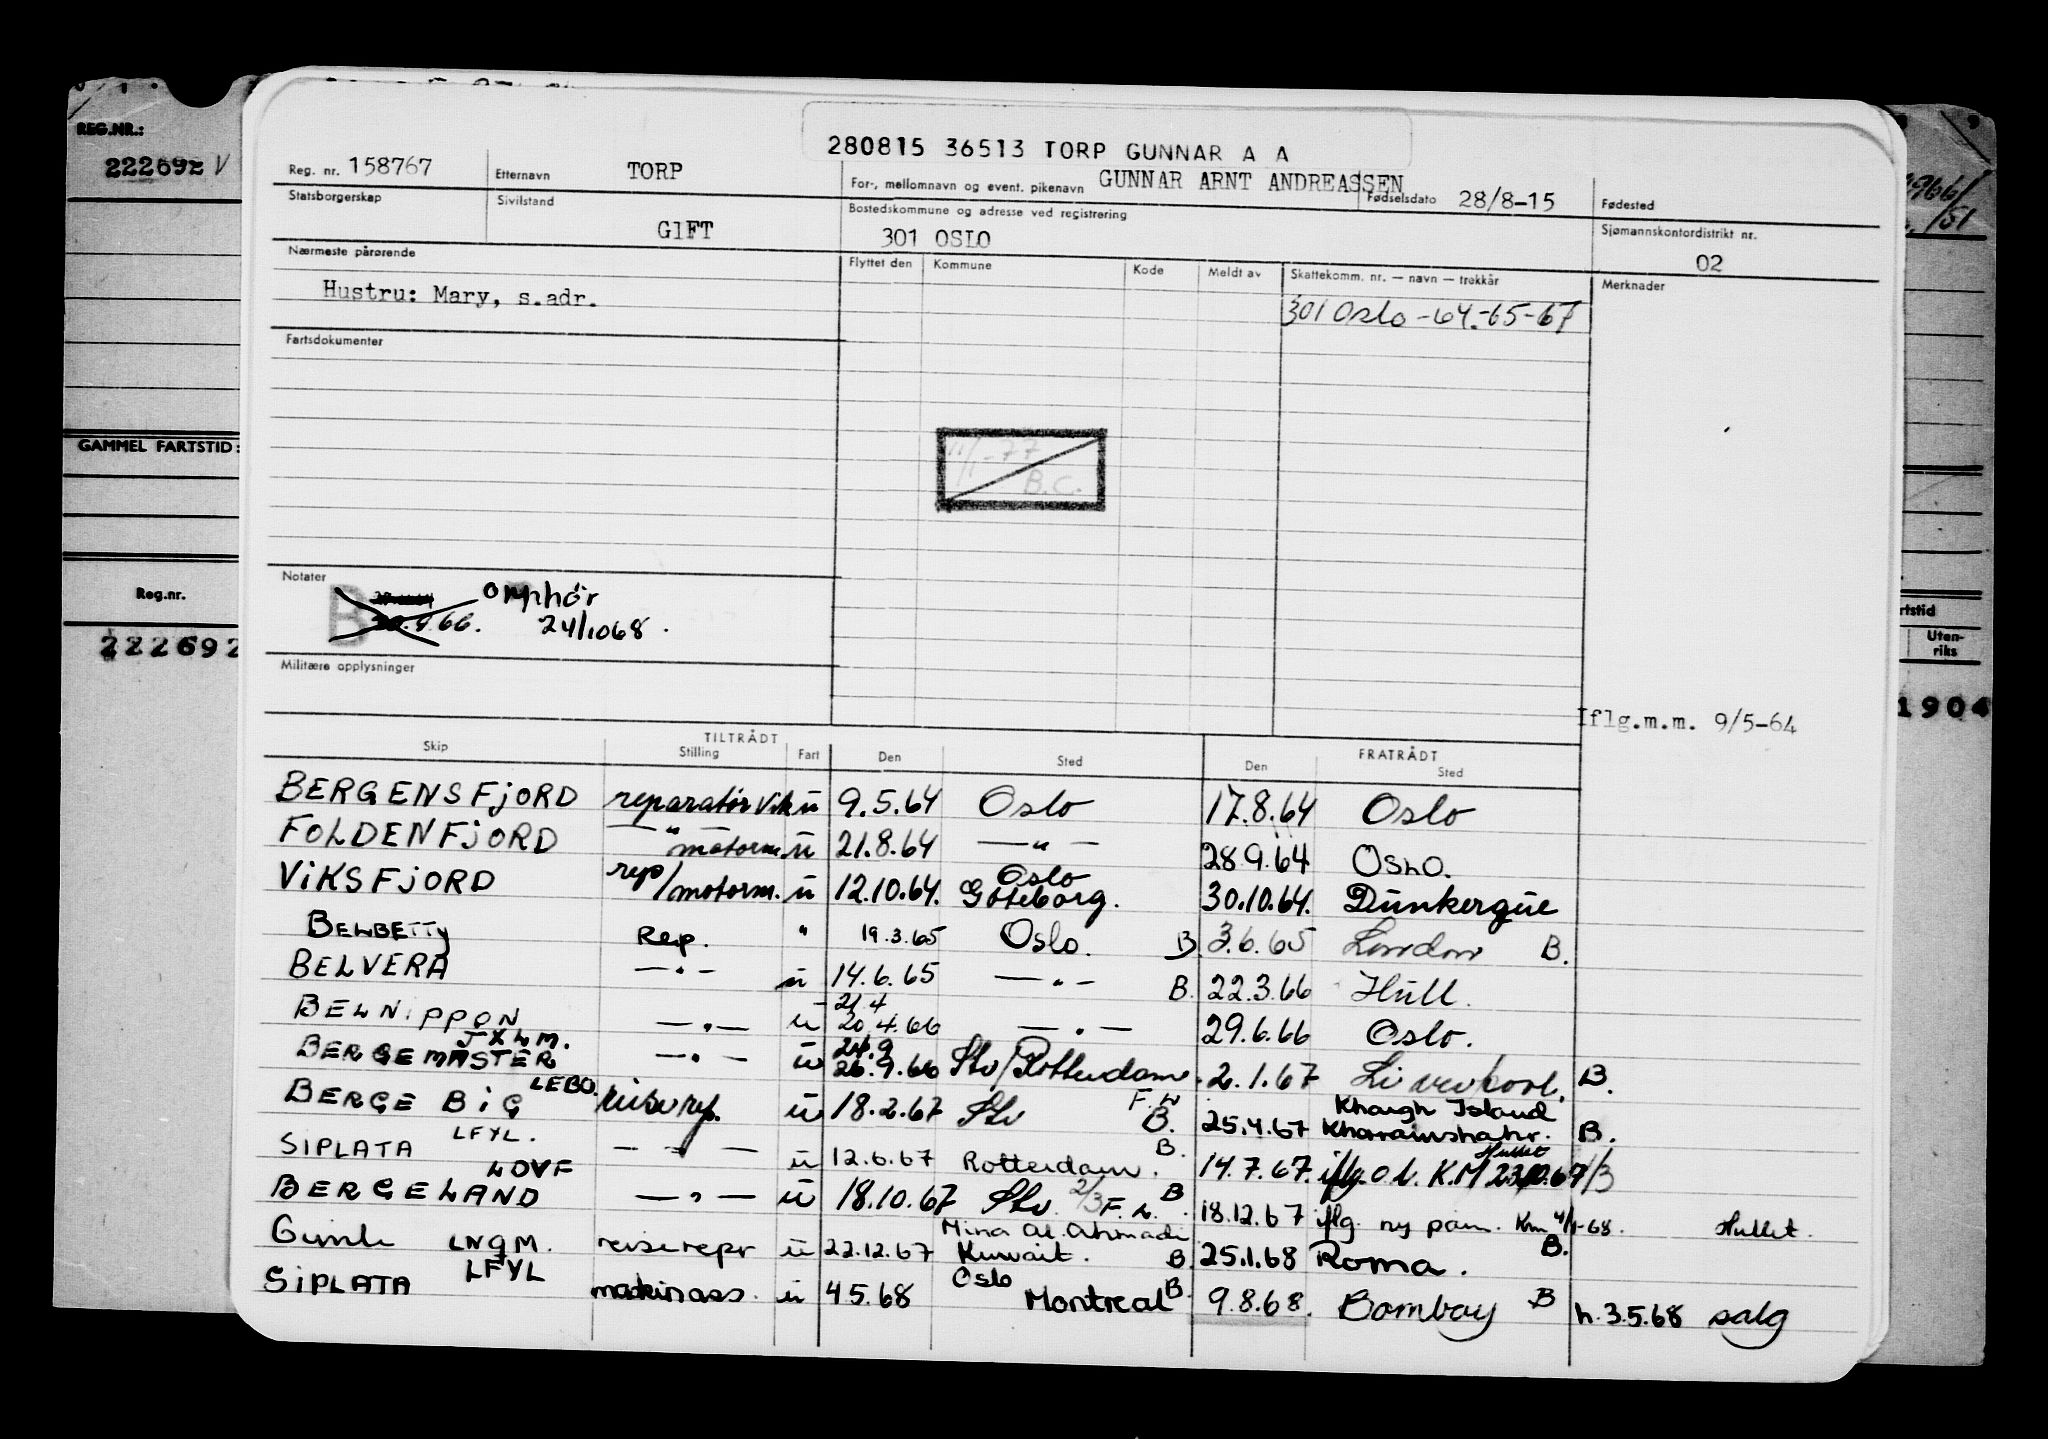 REG.NR.:
222692 V
GAMMEL FARTSTID:
Reg.nr.
222692
280815 36513 TORP GUNNAR A A
Reg. nr. 158767 Etternavn TORP For-, mellomnavn og event. pikenavn GUNNAR ARNT ANDREASSEN Fødselsdato 28/8-15 Fødested
Statsborgerskap Sivilstand GIFT Bostedskommune og adresse ved registrering 301 OSLO Sjømannskontordistrikt nr. 02
Nærmeste pårørende Flyttet den Kommune Kode Meldt av Skattekomm. nr. — navn — trekkår Merknader
Hustru: Mary, s.adr. 301 Oslo -64.-65-67
Fartsdokumenter
11/1-77
B.C.
Notater
B 66. Opphør
24/1068.
Militære opplysninger
Iflg.m.m. 9/5-64
TILTRÅDT FRATRÅDT
Skip Stilling Fart Den Sted Den Sted
BERGENSFJORD reparatør u 9.5.64 Oslo 17.8.64 Oslo
FOLDENFJORD — " — motorm. u 21.8.64 — " — 28.9.64 OSLO.
VIKSFJORD rep/motorm. u 12.10.64. Oslo Göteborg. 30.10.64. Dunkerque
BELBETTY Rep. " 19.3.65 Oslo. B. 3.6.65 London B.
BELVERA — " — u 14.6.65 — " — B. 22.3.66 Hull.
BELNIPPON — " — u 21.4 20.4.66 — " — 29.6.66 Oslo.
BERGEMASTER JXLM. — " — u 26.9.66 Stv/Rotterdam. 2.1.67 Liverpool. B.
BERGE BIG LEBO. reiserep. u 18.2.67 Stv B. 25.4.67 Khargh Island Khorramshahr. B.
SIPLATA LFYL. — " — u 12.6.67 Rotterdam. B. 14.7.67. iflg. o.l. K.M Hullet
BERGELAND LDVF — " — u 18.10.67 Stv. 2/3 B. 18.12.67 iflg. ny pam. Km 4/1-68. Hullet.
Gimle LNGM. reiserepr u 22.12.67 Mina Al. Ahmadi Kuwait. B. 25.1.68 Roma. B.
SIPLATA LFYL maskinass. u 4.5.68 Oslo Montreal B. 9.8.68. Bombay B h.3.5.68 salg
1966/
/51
rtstid
Uten-
riks
1904